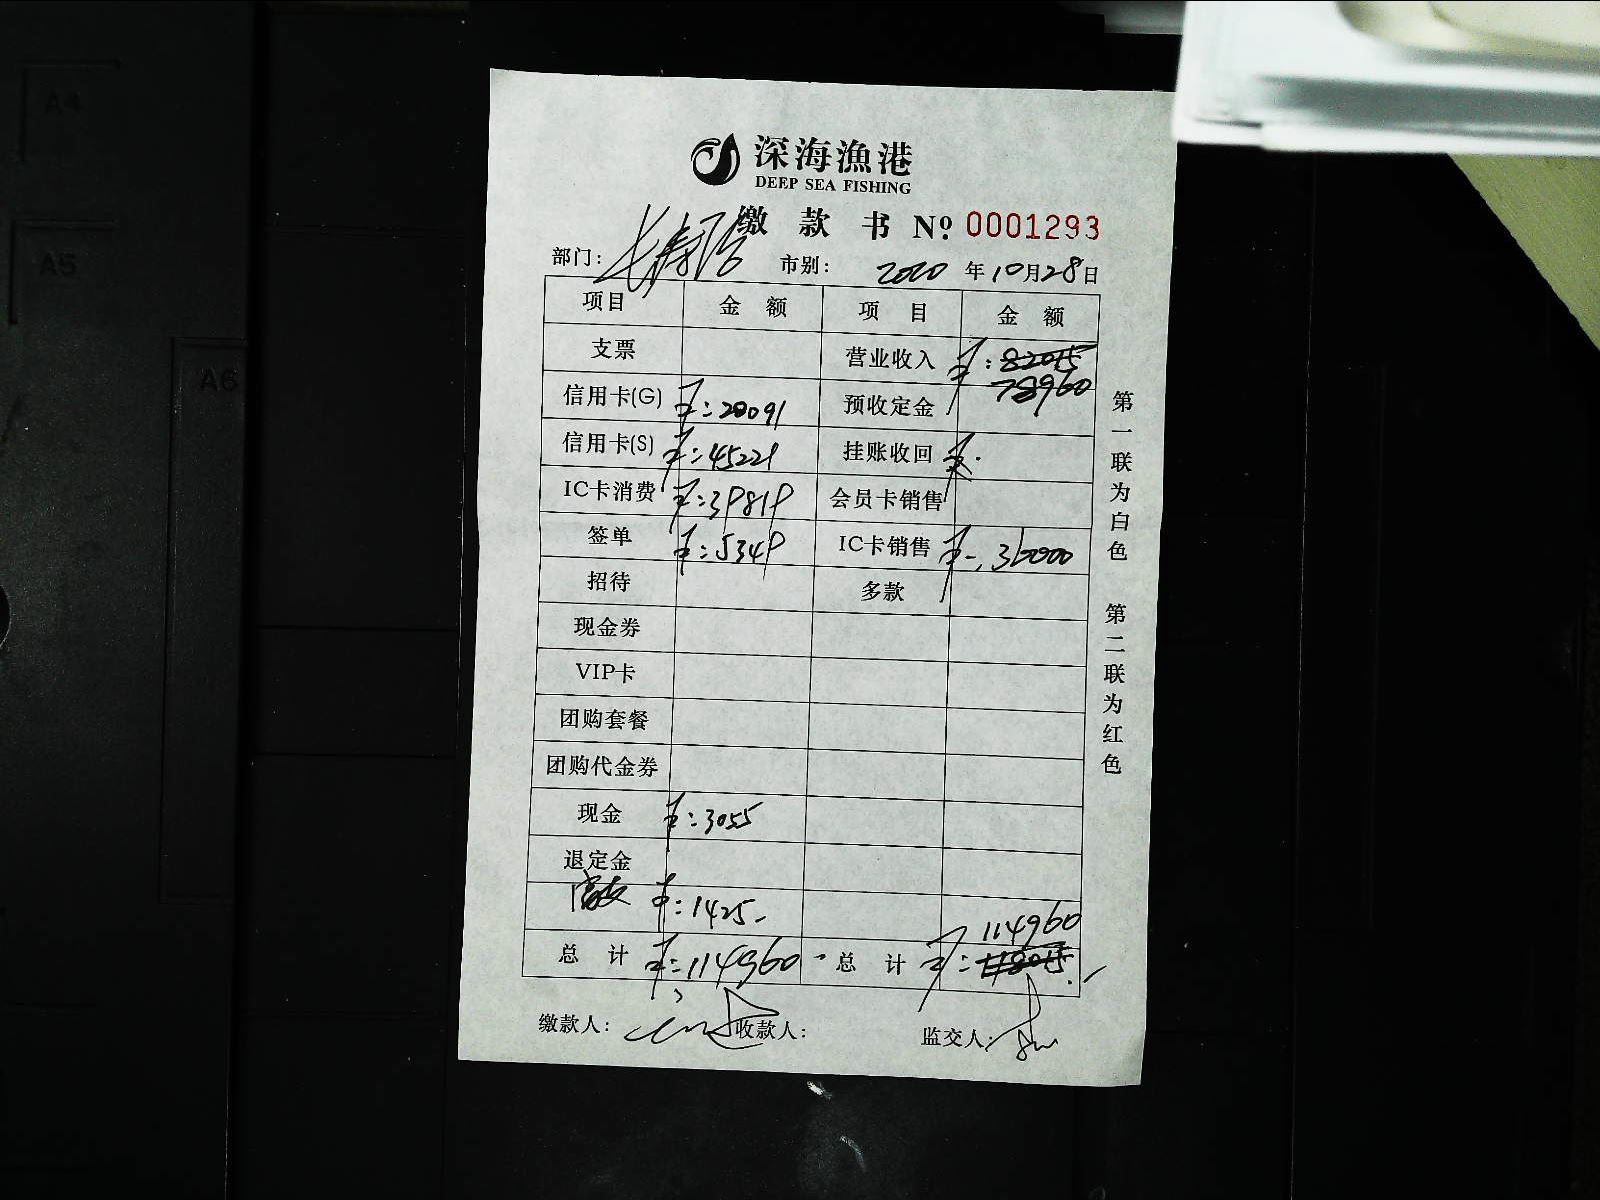 A4
A5
A6
深海漁港
DEEP SEA FISHING
缴款书 Nº 0001293
部门：长寿路 市别： 2020年10月28日
项目 金额 项目 金额
支票 营业收入 ¥：82015
78960
信用卡(G) ¥：20091 预收定金
信用卡(S) ¥：45221 挂账收回
IC卡消费 ¥：39819 会员卡销售
签单 ¥：5349 IC卡销售 ¥：36000
招待 多款
现金券
VIP卡
团购套餐
团购代金券
现金 ¥：3055
退定金
¥：1425
114960
总计 ¥：114960 总计 ¥：118015
缴款人： 收款人： 监交人：
第一联为白色 第二联为红色